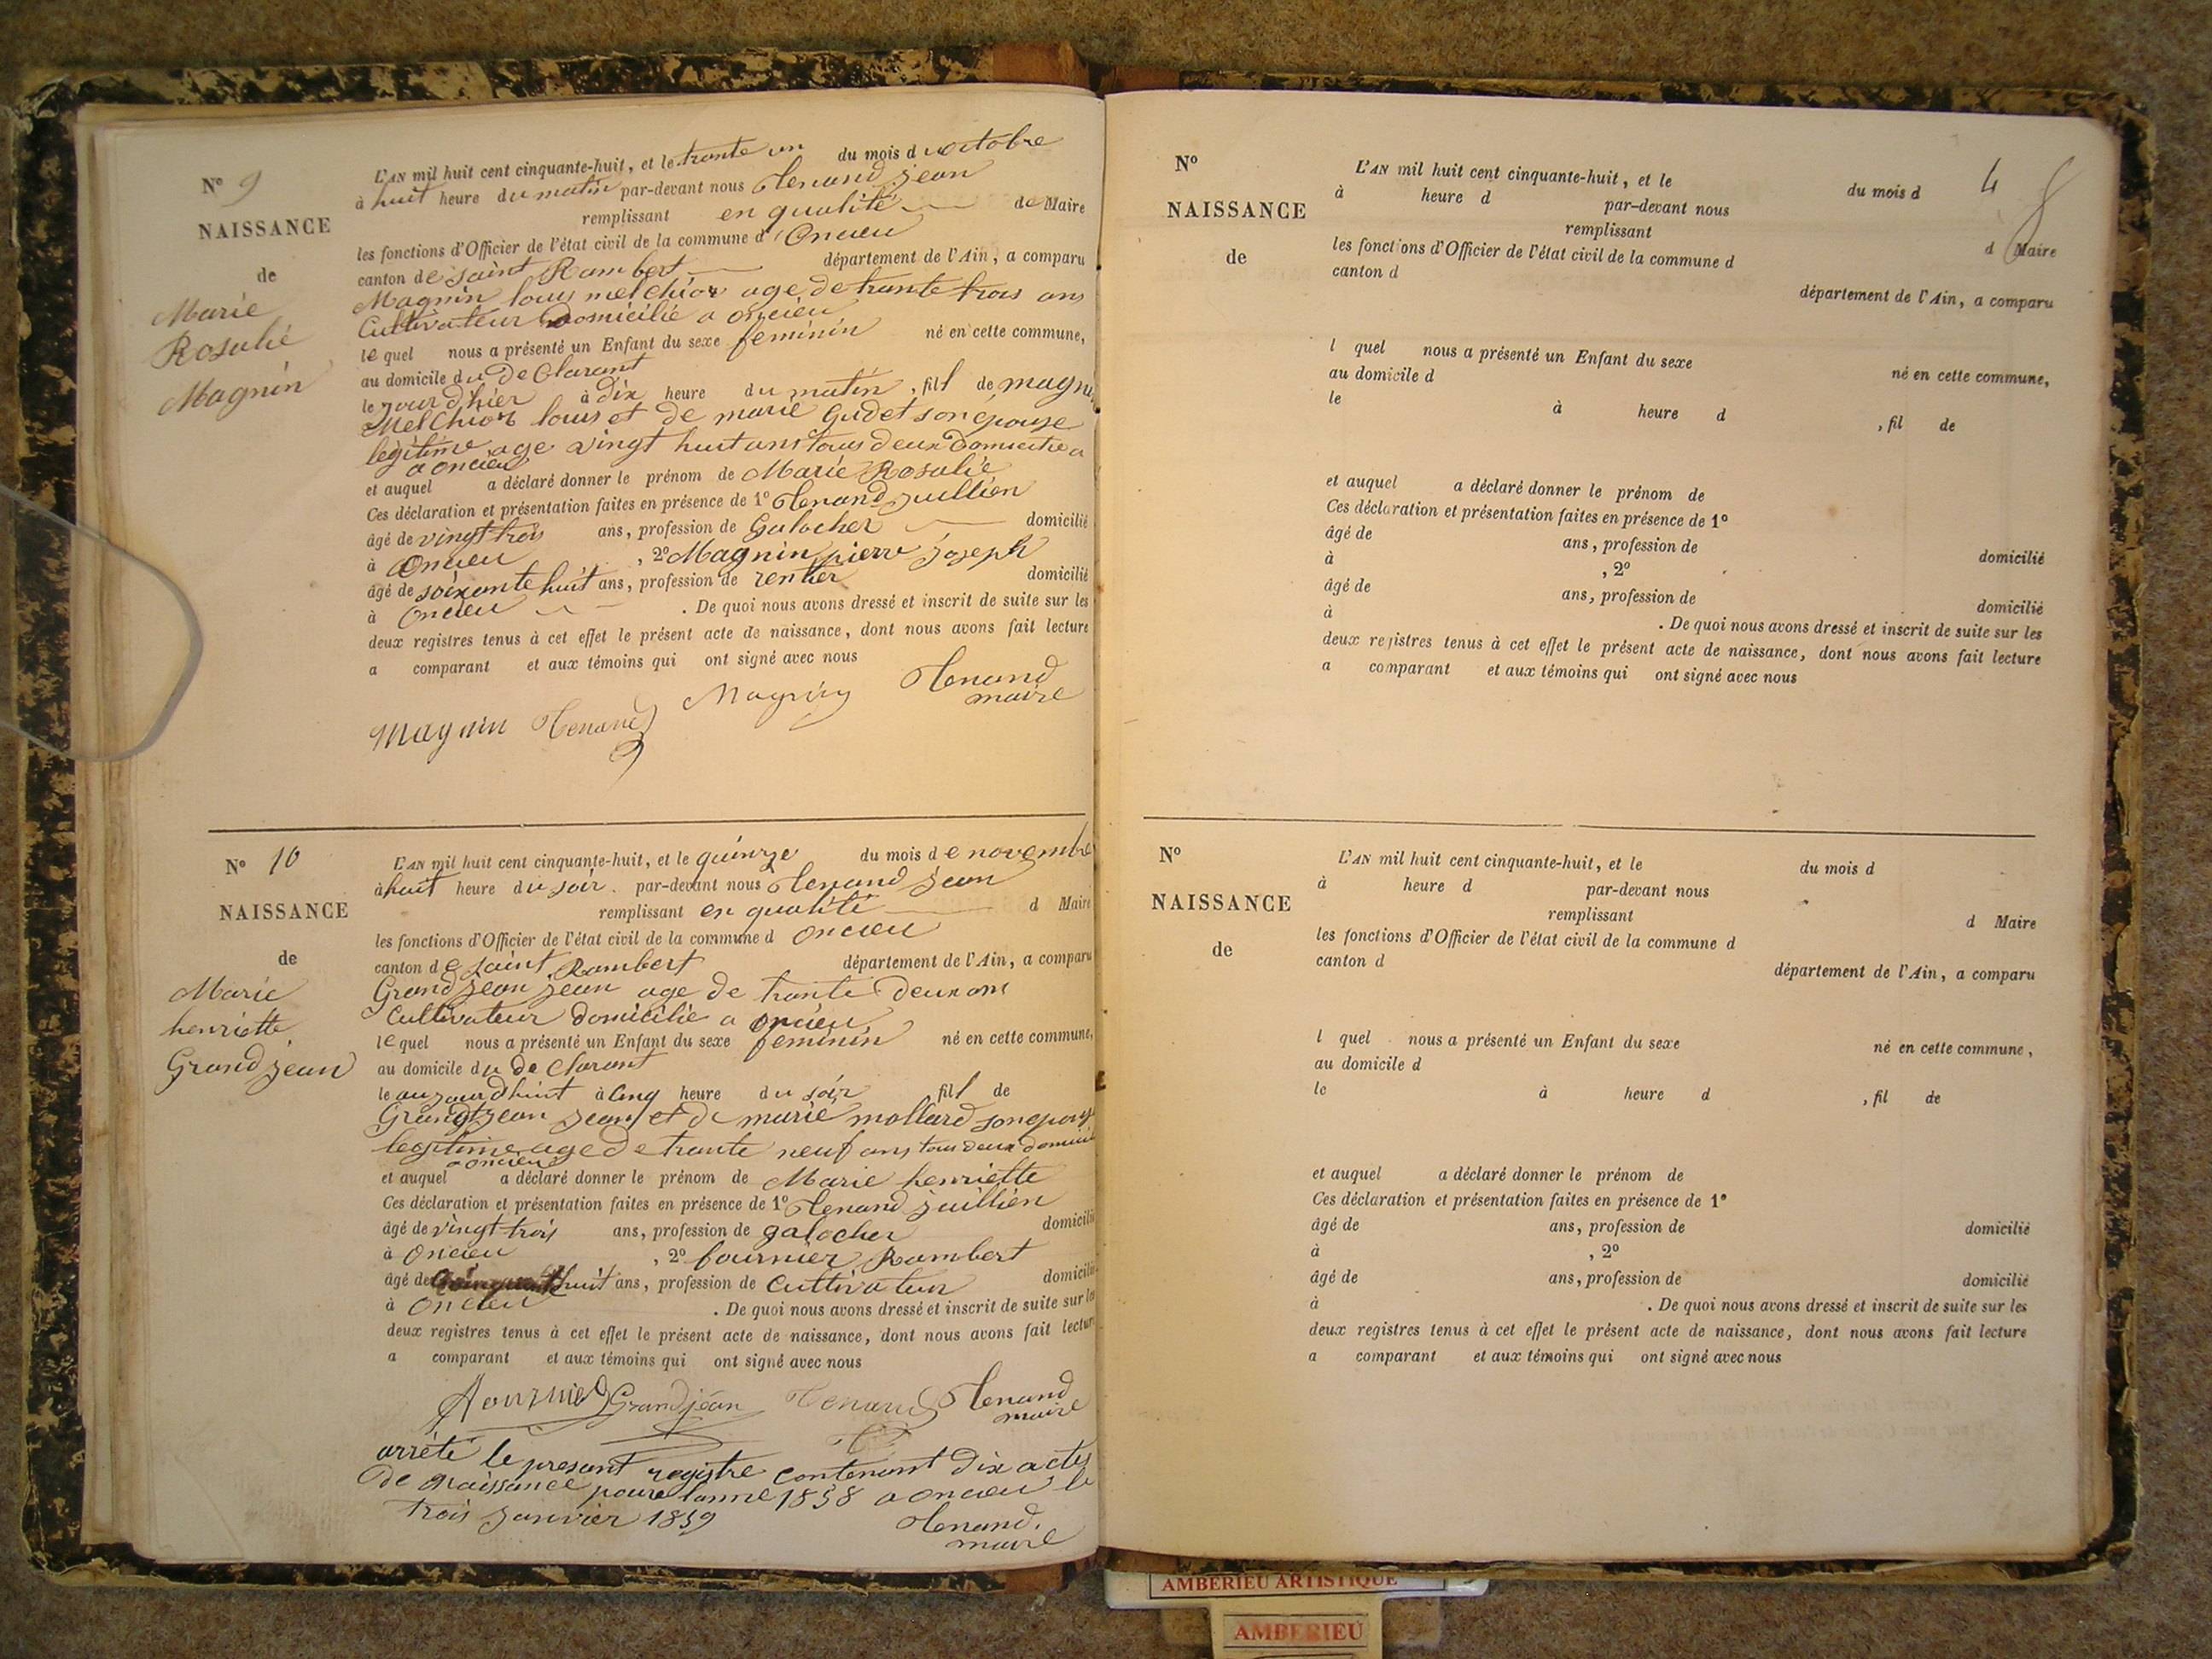 N° 9
NAISSANCE
de
Marie
Rosalie
Magnin
L'AN mil huit cent cinquante-huit, et le trante un du mois d octobre
à huit heure du matin par-devant nous Tenand jean
remplissant en qualité de Maire
les fonctions d'Officier de l'état civil de la commune d Oncieu
canton de saint Rambert département de l'Ain, a comparu
Magnin louis melchior age de trante trois ans
Cultivateur domicilié a oncieu
lequel nous a présenté un Enfant du sexe feminin né en cette commune,
au domicile du declarant
le jour d'hier à dix heure du matin, fill de magnin
Melchior louis et de marie Gudet son épouse
légitime age vingt huit ans tous deux domicilie a
a oncieu
et auquel a déclaré donner le prénom de Marie Rosalie
Ces déclaration et présentation faites en présence de 1° Tenand juillien
âgé de vingt trois ans, profession de Galocher domicilié
à Oncieu, 2° Magnin pierre joseph
âgé de soixante huit ans, profession de rentier domicilié
à Oncieu. De quoi nous avons dressé et inscrit de suite sur les
deux registres tenus à cet effet le présent acte de naissance, dont nous avons fait lecture
a comparant et aux témoins qui ont signé avec nous
Magnin Tenand Magnin Tenand
maire
N° 10
NAISSANCE
de
Marie
henriette
Grandjean
L'AN mil huit cent cinquante-huit, et le quinze du mois de novembre
à huit heure du soir. par-devant nous Tenand jean
remplissant en qualité d Maire
les fonctions d'Officier de l'état civil de la commune d oncieu
canton de saint Rambert département de l'Ain, a comparu
Grandjean jean age de trante deux ans
Cultivateur domicilié a oncieu
lequel nous a présenté un Enfant du sexe feminin né en cette commune,
au domicile du declarant
le aujourdhuit à cinq heure du soir fill de
Grandjean jean et de marie mollard son epouse
legitime age de trante neuf ans tous deux domicilié
a oncieu
et auquel a déclaré donner le prénom de Marie henriette
Ces déclaration et présentation faites en présence de 1° Tenand juillien
âgé de vingt trois ans, profession de galocher domicilié
à Oncieu, 2° fournier Rambert
âgé de huit ans, profession de Cultivateur domicilié
à Oncieu. De quoi nous avons dressé et inscrit de suite sur les
deux registres tenus à cet effet le présent acte de naissance, dont nous avons fait lecture
a comparant et aux témoins qui ont signé avec nous
fournier Grandjean Tenand Tenand
maire
arrété le present registre contenant dix actes
de naissance pour lanne 1858 a oncieu le
trois janvier 1859
Tenand.
maire
4
N°
NAISSANCE
de
L'AN mil huit cent cinquante-huit, et le du mois d
à heure d par-devant nous
remplissant d Maire
les fonctions d'Officier de l'état civil de la commune d
canton d département de l'Ain, a comparu
l quel nous a présenté un Enfant du sexe né en cette commune,
au domicile d
le à heure d, fil de
et auquel a déclaré donner le prénom de
Ces déclaration et présentation faites en présence de 1°
âgé de ans, profession de domicilié
à, 2°
âgé de ans, profession de domicilié
à. De quoi nous avons dressé et inscrit de suite sur les
deux registres tenus à cet effet le présent acte de naissance, dont nous avons fait lecture
a comparant et aux témoins qui ont signé avec nous
N°
NAISSANCE
de
L'AN mil huit cent cinquante-huit, et le du mois d
à heure d par-devant nous
remplissant d Maire
les fonctions d'Officier de l'état civil de la commune d
canton d département de l'Ain, a comparu
l quel nous a présenté un Enfant du sexe né en cette commune,
au domicile d
le à heure d, fil de
et auquel a déclaré donner le prénom de
Ces déclaration et présentation faites en présence de 1°
âgé de ans, profession de domicilié
à, 2°
âgé de ans, profession de domicilié
à. De quoi nous avons dressé et inscrit de suite sur les
deux registres tenus à cet effet le présent acte de naissance, dont nous avons fait lecture
a comparant et aux témoins qui ont signé avec nous
AMBERIEU ARTISTIQUE
AMBERIEU